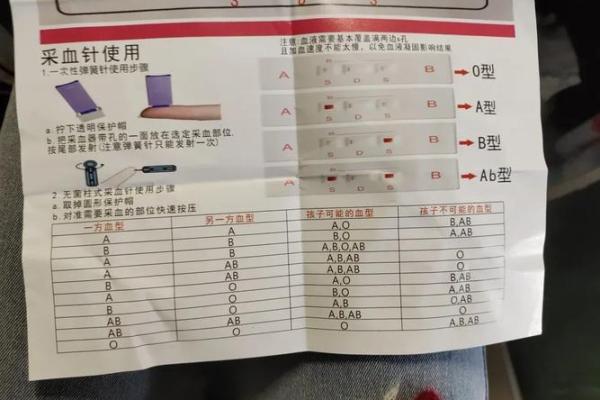 S D S
采血针使用
1.一次性弹簧针使用步骤
a.拧下透明保护帽
b.把采血器带孔的一面放在选定采血部位.
按尾部发射(注意弹簧针只能发射一次)
2.无菌柱式采血针使用步骤
a.取掉圆形保护帽
b.对准需要采血的部位快速按压
注意:血液需要基本覆盖满两边s孔
且加血速度不能太慢，以免血液凝固影响结果
A B O型
S D S
A B A型
S D S
A B B型
S D S
A B Ab型
S D S
一方血型 另一方血型 孩子可能的血型 孩子不可能的血型
A A A,O B,AB
B B B,O A,AB
A B A,B,O,AB
A AB A,B,AB O
B AB A,B,AB O
A O A,O B,AB
B O B,O A,AB
AB O A,B O,AB
AB AB A,B,AB O
O O O A,B,AB